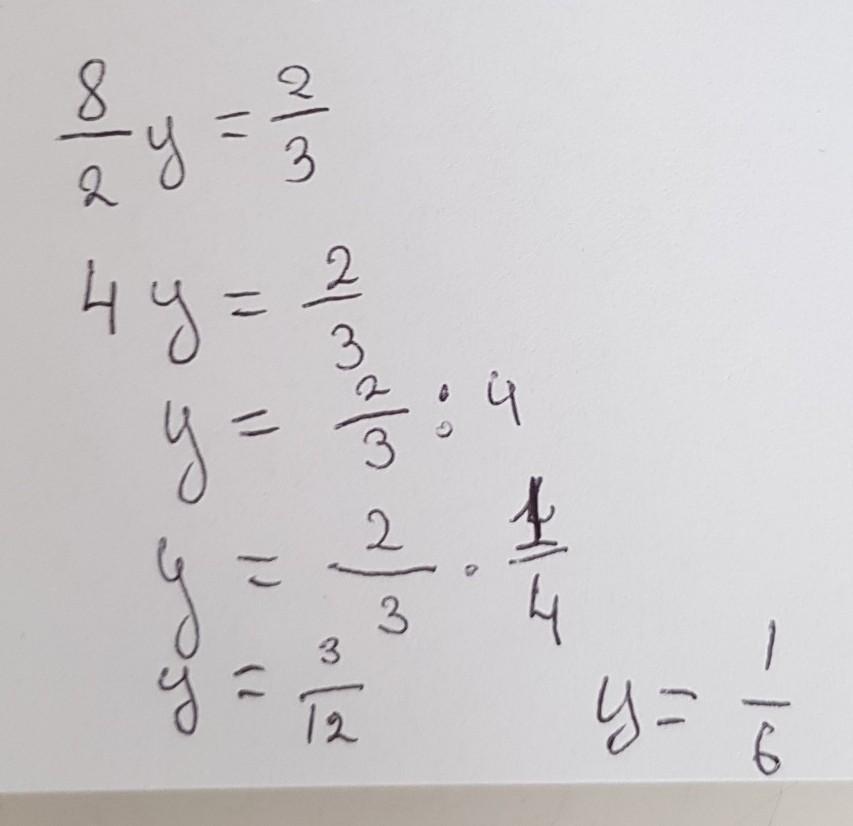 8/2 y = 2/3
4y = 2/3
y = 2/3 : 4
y = 2/3 · 1/4
y = 3/12 y = 1/6